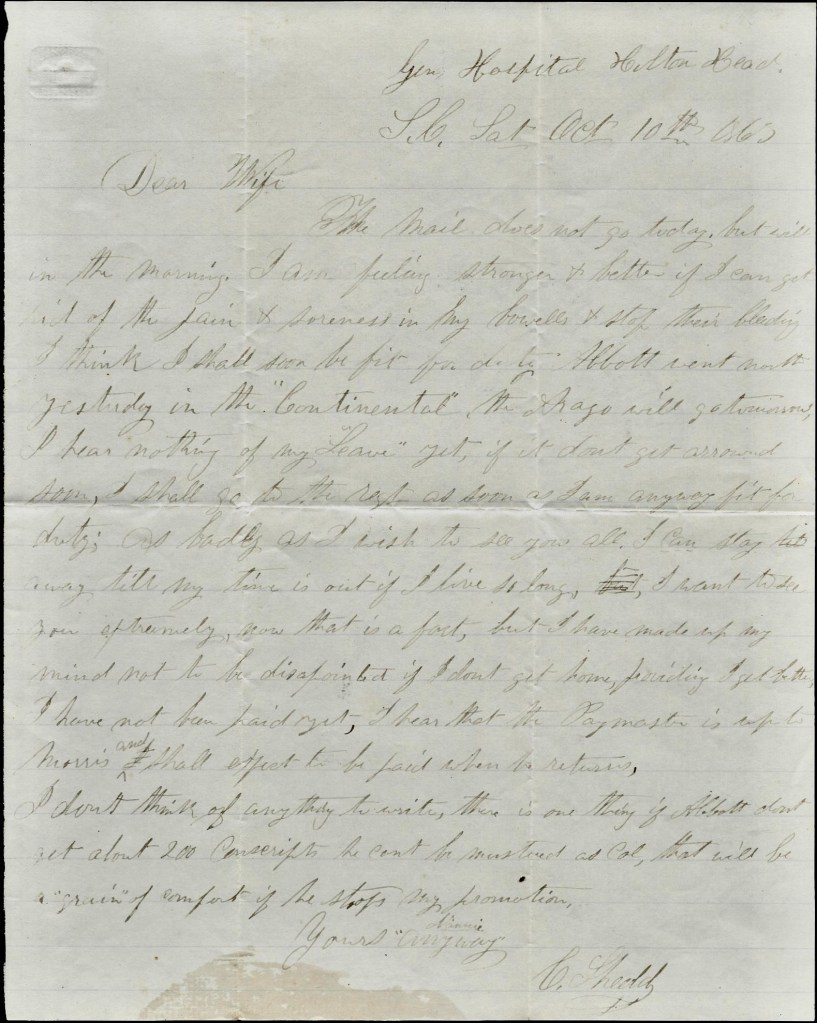 Gen, Hospital Hilton Head.
S.C. Sat Oct 10th 1863
Dear Wife
The mail does not go today, but will
in the morning. I am feeling stronger & better if I can get
rid of the pain & soreness in my bowells & stop their bleeding
I think I shall soon be fit for duty. Abbott went north
yesterday in the "Continental", the Arago will go tomorrow,
I hear nothing of my "Leave" yet, if it dont get arround
soon, I shall go to the regt as soon as I am anyway fit for
duty; As badly as I wish to see you all. I can stay
away till my time is out if I live so long, I want to see
you extremely, now that is a fact, but I have made up my
mind not to be disapointed if I dont get home, providing I get better,
I have not been paid yet, I hear that the Paymaster is up to
Morris and shall expect to be paid when he returns,
I dont think of anything to write, there is one thing if Abbott dont
get about 200 Conscripts he cant be mustered as Col, that will be
a "grain" of comfort if he stops my promotion,
Yours "anyway"
C. Shedd